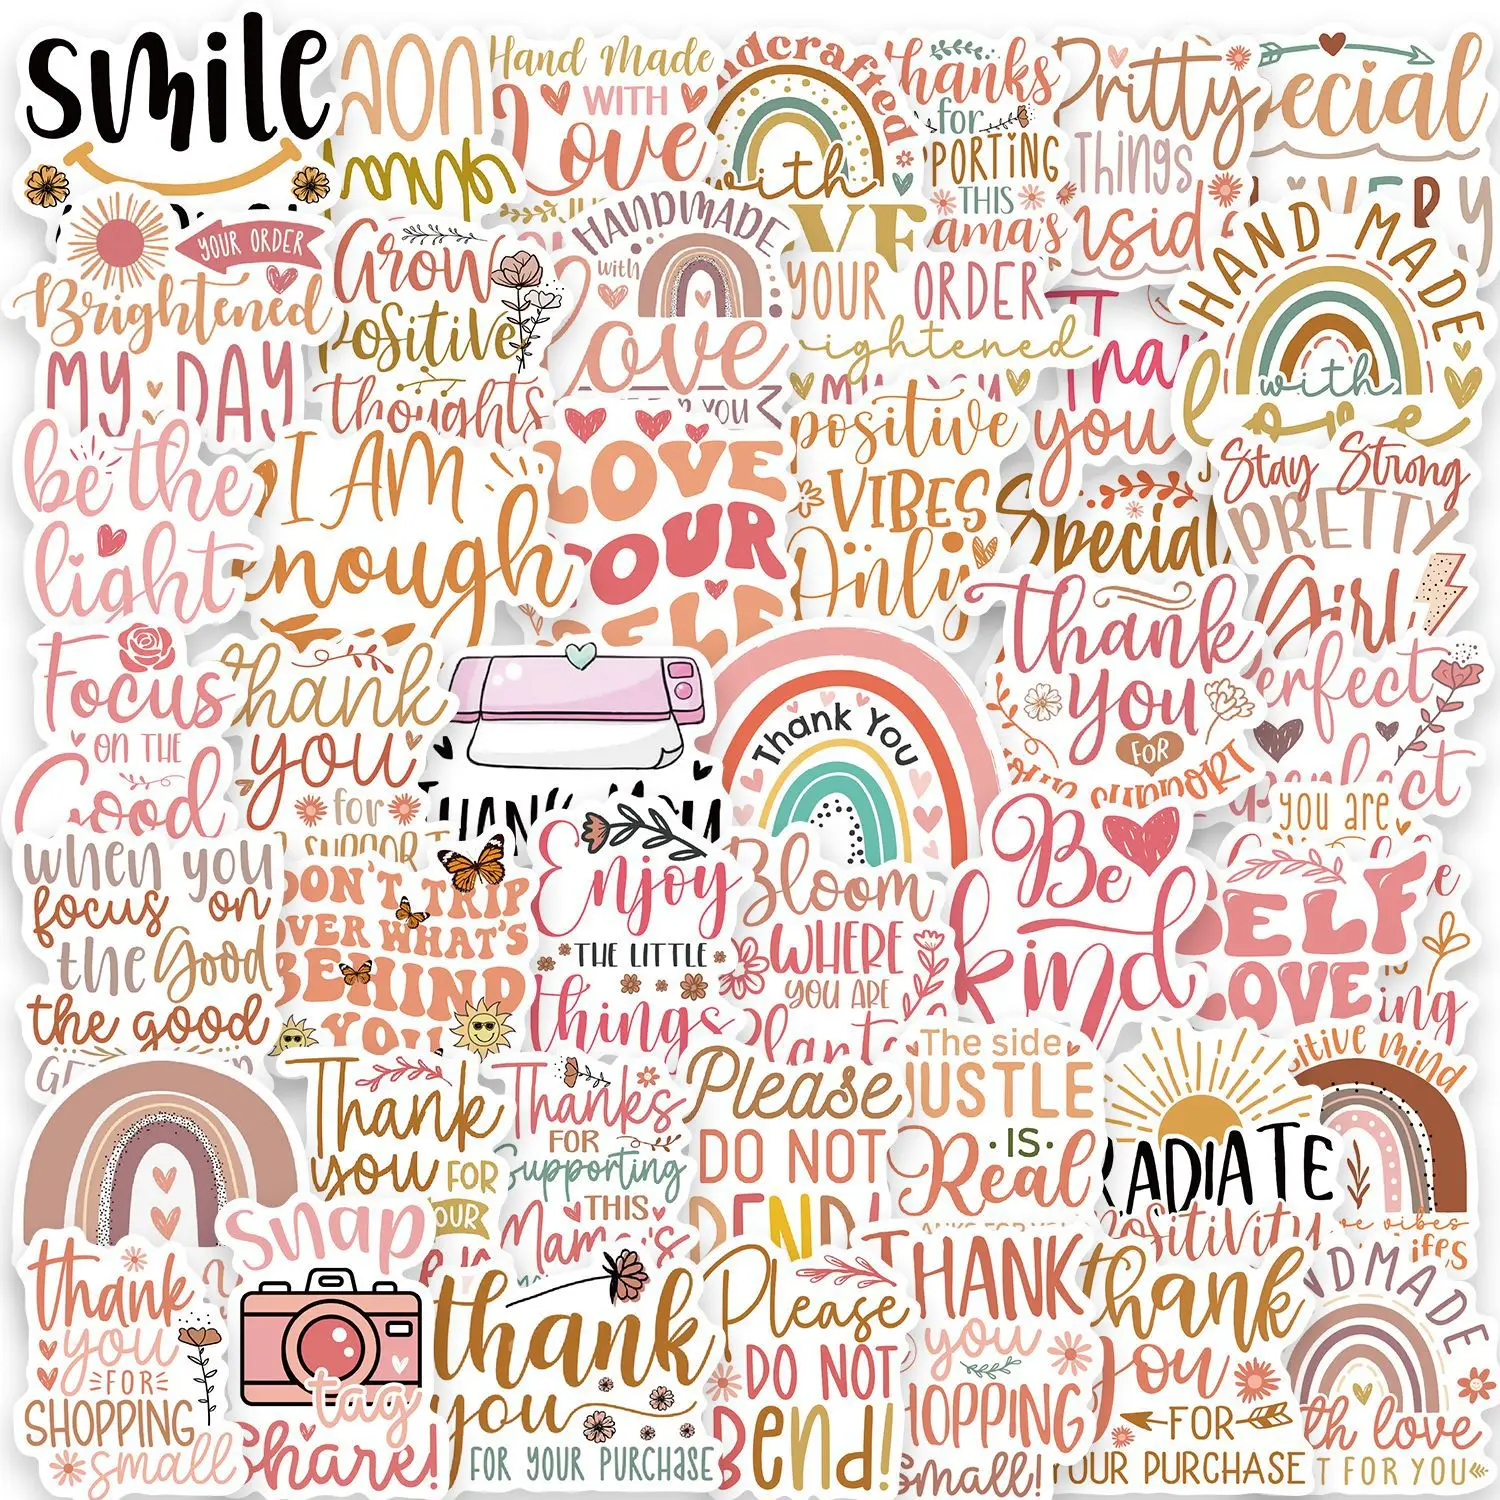 smile
Hand Made
WITH
Love
with
Thanks
for
THIS
Pritty
Things
YOUR ORDER
Brightened
MY DAY
Grow
Positive
thoughts
HANDMADE
with
Love
YOU
YOUR ORDER
you
HAND MADE
with
love
be the
light
I AM
enough
LOVE
YOUR
positive
VIBES
Only
Special
Stay Strong
PRETTY
Girl
Focus
ON THE
Good
Thank
you
for
THANK YOU
Thank You
Thank
you
FOR
YOUR SUPPORT
you are
when you
focus on
the Good
the good
DON'T TRIP
OVER WHAT'S
BEHIND
YOU
Enjoy
THE LITTLE
things
Bloom
WHERE
YOU ARE
Be
kind
SELF
LOVE
Thank
you FOR
YOUR
Thanks
FOR
Supporting
THIS
Mama's
Please
DO NOT
BEND!
The side
HUSTLE
IS
Real
RADIATE
Positivity
thank
you
FOR
SHOPPING
small
snap
tag
Share!
thank
you
FOR YOUR PURCHASE
Please
DO NOT
Bend!
THANK
you
SHOPPING
small!
thank
you
FOR
YOUR PURCHASE
HANDMADE
with love
FOR YOU